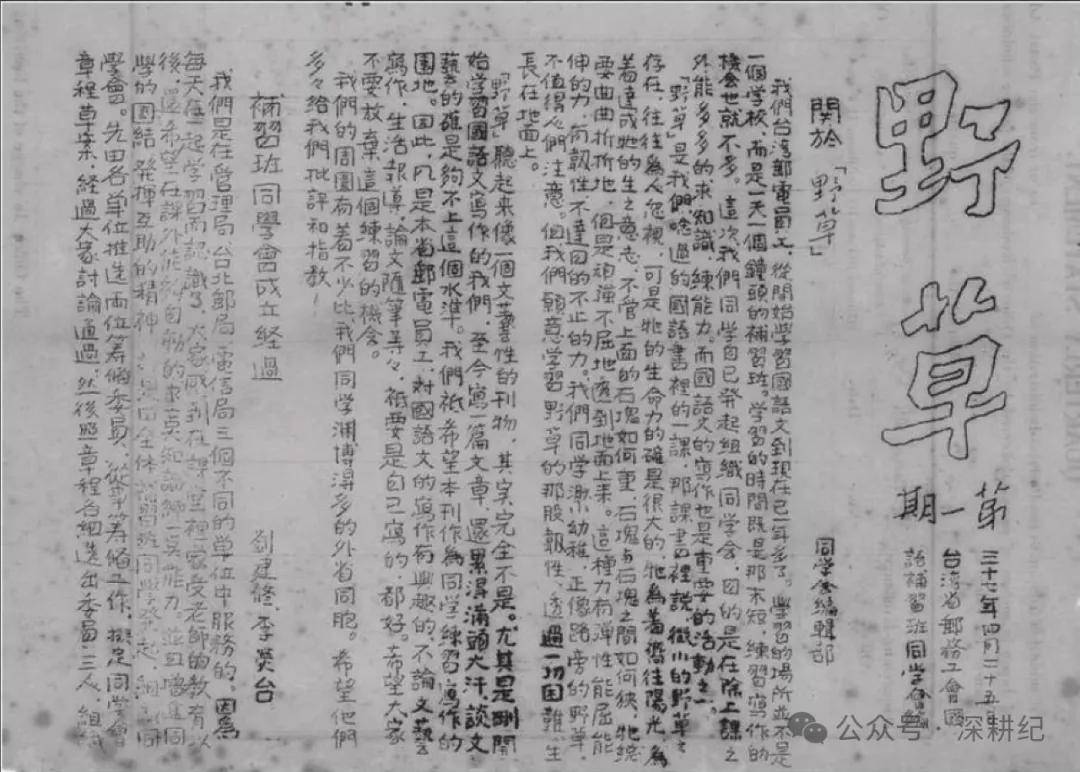 野草
第一期
三十七年四月二十五日
台湾省郵務工會國
語補習班同學會
關於「野草」
同學會編輯部
我們台湾郵電員工，從開始學習國語文到現在已一年多了。學習的場所並不是
一個学校，而是一天一個鐘頭的補習班。学習的時間既是那末短，練習寫作的
機会也就不多。這次我們同学自己発起組織同学会，目的是在除上課之
外能多多的求知識，練能力。而國語文的寫作也是重要的活動之一。
「野草」是我們唸過的國語書裡的一課，那課書裡説，微小的野草之
存在，往往為人忽視，可是牠的生命力的確是很大的，牠為着嚮往陽光，為
着達成牠的生之意志，不管上面的石塊如何重，石塊与石塊之間如何狹，牠總
要曲曲折折地，但是頑強不屈地透到地面上来。這種力有弾性，能屈能
伸的力，有韌性，不達目的不止的力。我們同学渺幼稚，正像路旁的野草，
不值得人們注意。但我們願意学習野草的那股韌性，透過一切困難，生
長在地面上。
「野草」聽起来像一個文藝性的刊物，其实完全不是。尤其是剛開
始学習國語文寫作的我們，至今寫一篇文章，還累得滿頭大汗，談文
藝的確是夠不上這個水準。我們祇希望本刊作為同学練習寫作的
園地。因此，凡是本省郵電員工，対國語文的寫作有興趣的，不論文藝
寫作，生活報導，論文隨筆等々，祇要是自己寫的，都好。希望大家
不要放棄這個練習的機会。
我們的周圍有着不少比我們同学渊博得多的外省同胞。希望他們
多々給我們批評和指教！
補習班同學會成立経過
劉建修、李熒台
我們是在管理局、台北郵局、電信局三個不同的單位中服務的，因為
每天在一起学習而認識了。大家感到在課堂裡家受老師的教育以
後，還希望在課外能夠自動的求知識練能力。並且增進同
学的团結，発揮互助的精神，全体補習班同学発起組同
學會。先由各單位推选両位籌備委員，從事籌備工作，擬定同学會
章程草案，経過大家討論通過，然後照章程各組选出委員三人，組織
公众号·深耕纪